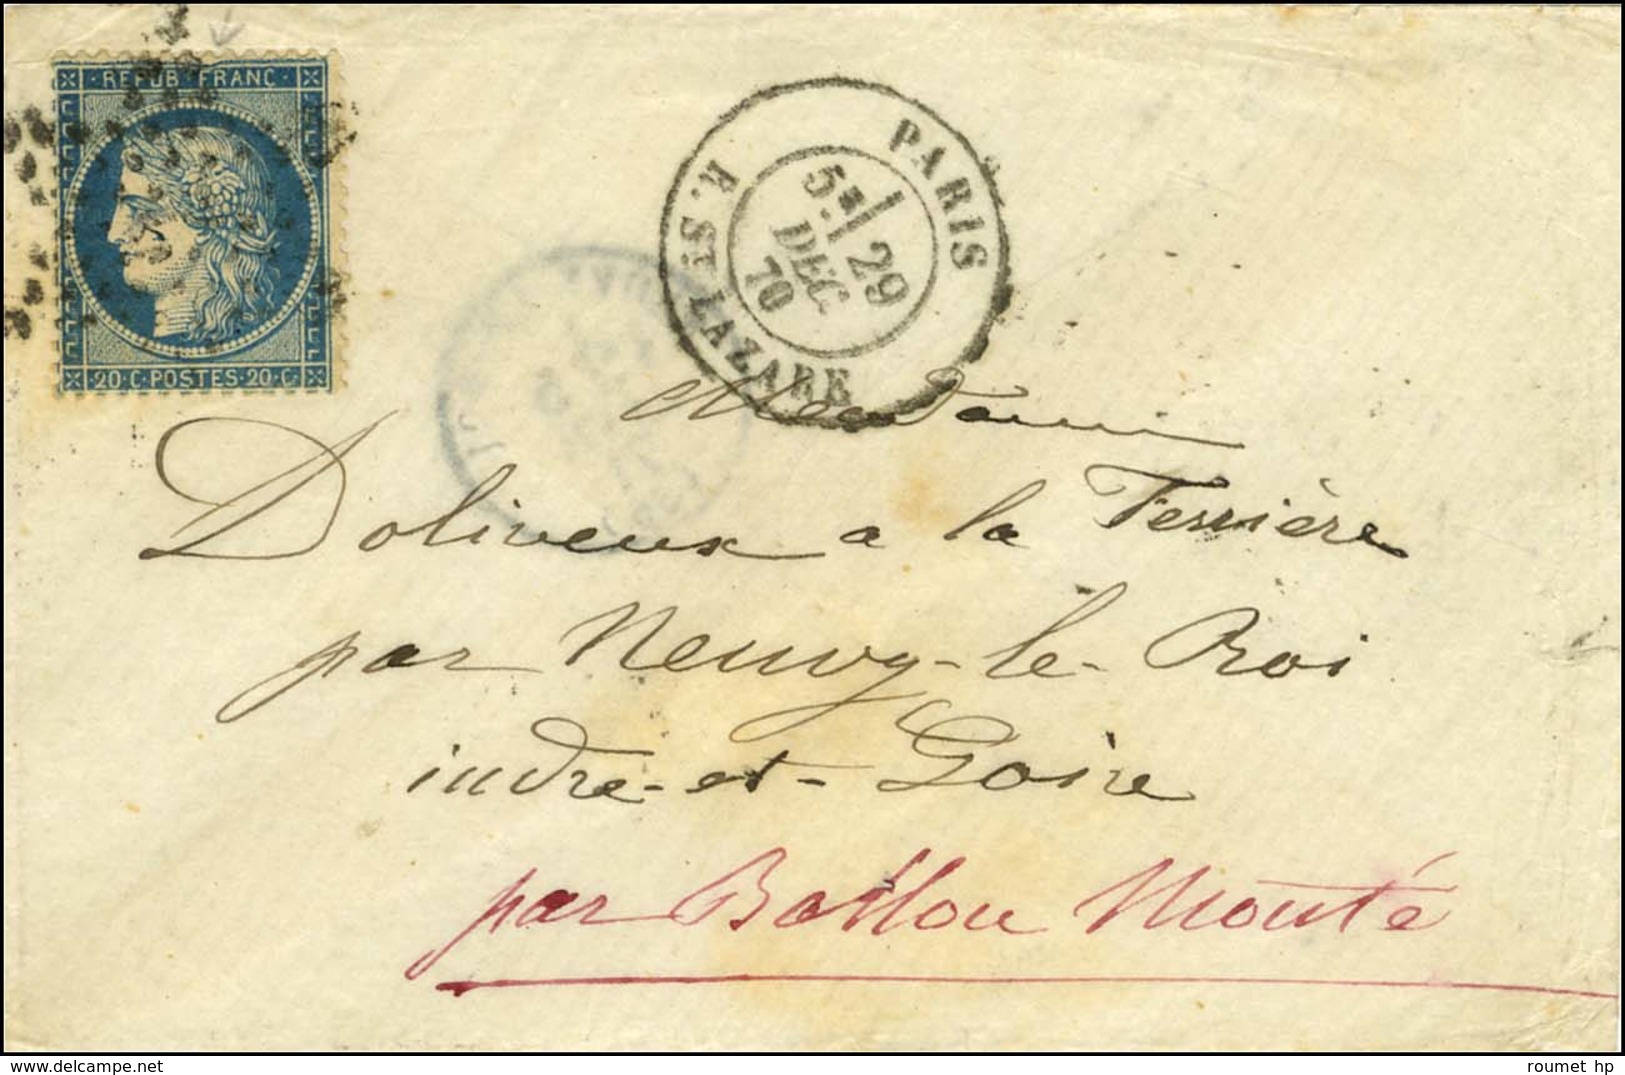 · REPUB · FRANC ·
20 · C · POSTES · 20 · C
PARIS
R. ST. LAZARE
5E
29
DEC.
70
Madame
Doliveux a la Ferrière
par Neuvy-le-Roi
indre-et-Loire
par Ballon Monté
roumet hp